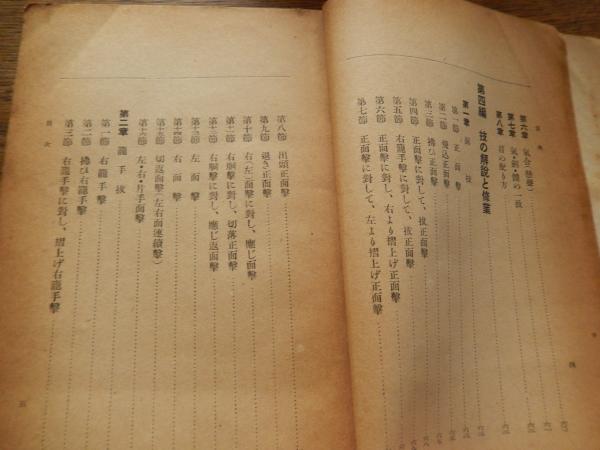 目次
第六章 氣合(懸聲)
第七章 氣・劍・體の一致
第八章 目の配り方
第四編 技の解說と修業
第一章 面技
第一節 正面擊
第二節 飛込正面擊
第三節 擔ひ正面擊
第四節 正面擊に對して、拔正面擊
第五節 右籠手擊に對して、拔正面擊
第六節 正面擊に對し、右より摺上げ正面擊
第七節 正面擊に對して、左より摺上げ正面擊
四
第八節 出頭正面擊
第九節 退き正面擊
第十節 右(左)面擊に對し、應じ面擊
第十一節 右胴擊に對し、切落正面擊
第十二節 右胴擊に對し、應じ返面擊
第十三節 左面擊
第十四節 右面擊
第十五節 切返面擊(左右面連續擊)
第十六節 左・右・片手面擊
第二章 籠手技
第一節 右籠手擊
第二節 擔ひ右籠手擊
第三節 右籠手擊に對し、摺上げ右籠手擊
目次
五